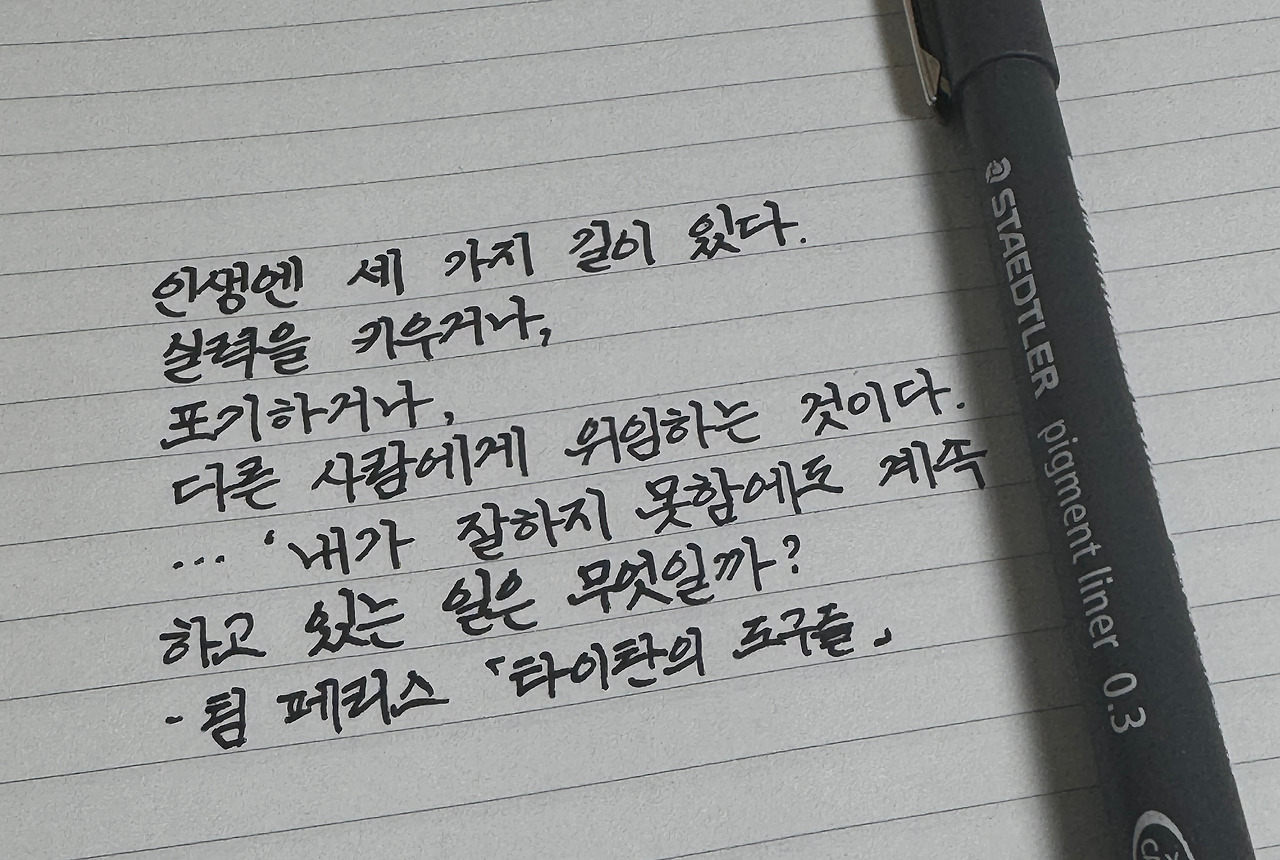 인생엔 세 가지 길이 있다.
실력을 키우거나,
포기하거나,
다른 사람에게 위임하는 것이다.
... '내가 잘하지 못함에도 계속
하고 있는 일은 무엇일까?
- 팀 페리스 「타이탄의 도구들」
STAEDTLER pigment liner 0.3